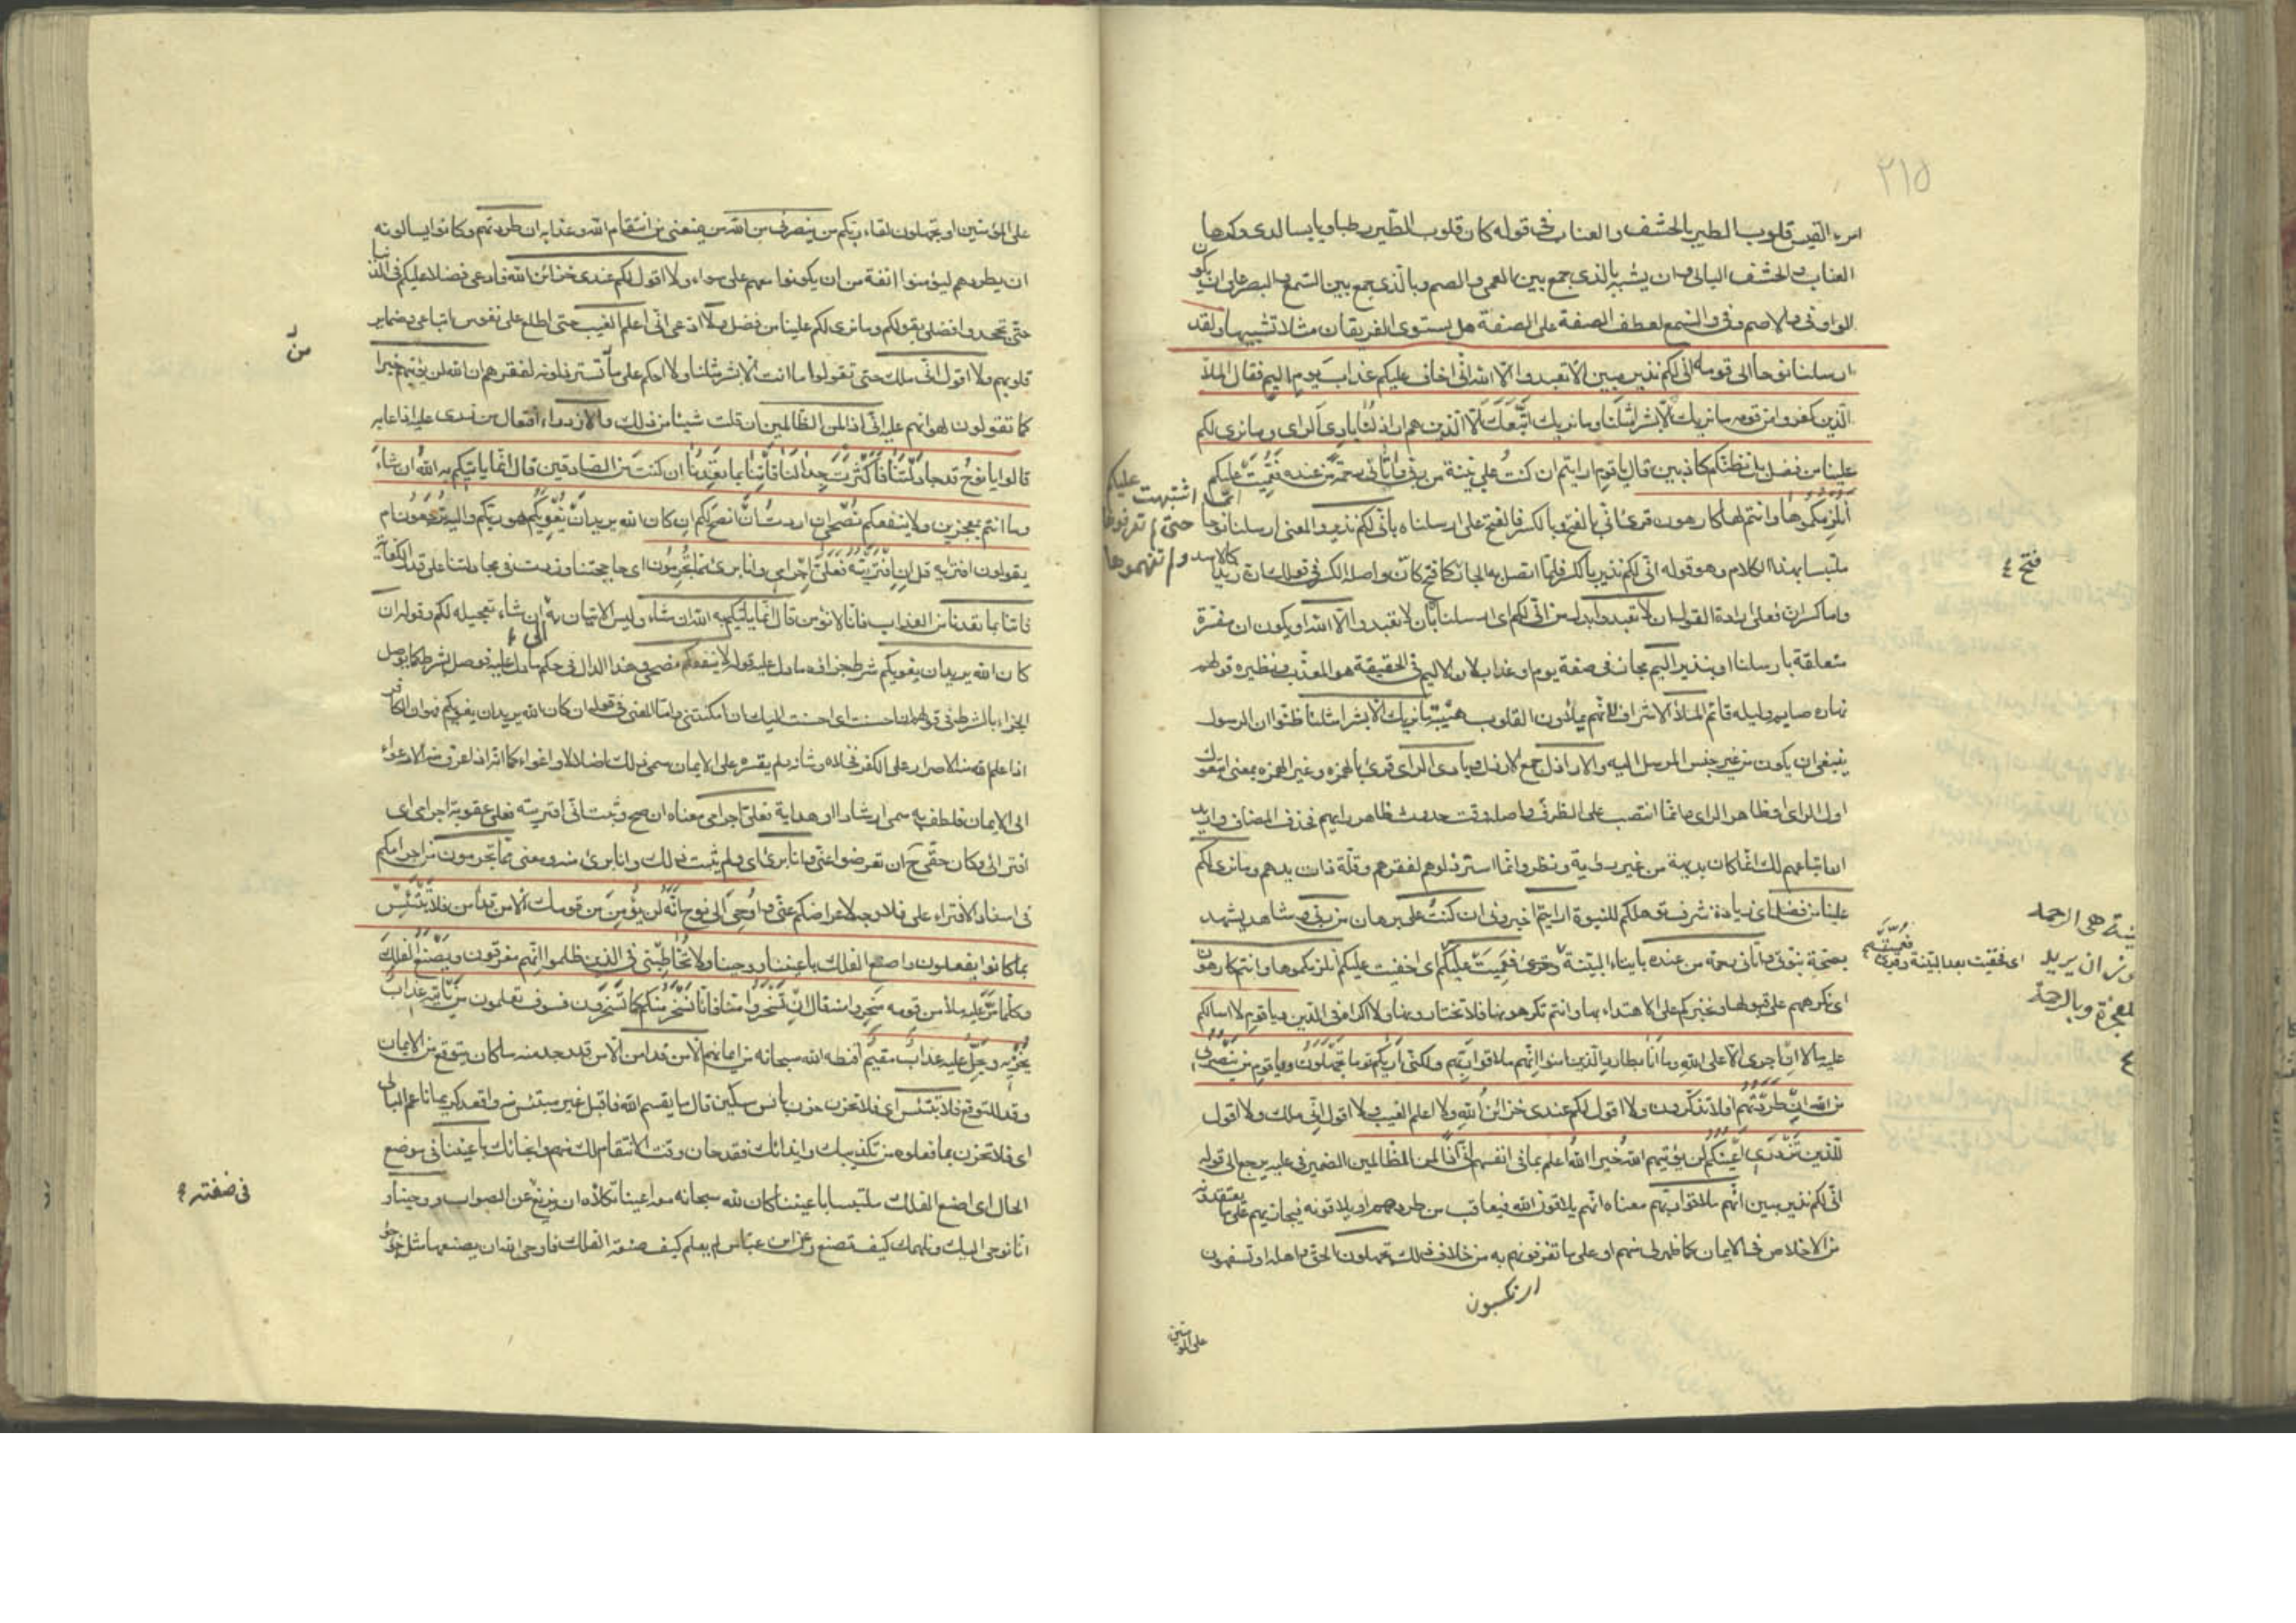 ٢١٥
امرء القيس قلوب الطير بالحشف والعناب في قوله كان قلوب الطير رطبا ويابسا لدى وكرها
العناب والحشف البالى وان يشبه بالذى جمع بين العمى والصم وبالذى جمع بين السمع والبصر على ان يكون
الواو فى والاصم وفى والسميع لعطف الصفة على الصفة هل يستوى الفريقان مثلا تشبيها ولقد
ارسلنا نوحا الى قومه انى لكم نذير مبين الا تعبدوا الا الله انى اخاف عليكم عذاب يوم اليم فقال الملأ
الذين كفروا من قومه ما نريك الا بشرا مثلنا وما نريك اتبعك الا الذين هم اراذلنا بادى الراى وما نرى لكم
علينا من فضل بل نظنكم كاذبين قال يا قوم ارايتم ان كنت على بينة من ربى واتانى رحمة من عنده فعميت عليكم
انلزمكموها وانتم لها كارهون قرئ انى بالفتح وبالكسر فالفتح على ارسلناه بانى لكم نذير والمعنى ارسلنا نوحا
ملتبسا بهذا الكلام وهو قوله انى لكم نذير بالكسر فلما اتصل به الجار فتح كما فتح كان واصله الكسر فى قولك ان زيدا كالاسد
واما كسران فعلى ارادة القول ان لا تعبدوا بدل من انى لكم اى ارسلنا بان لا تعبدوا الا الله او يكون ان مفسرة
متعلقة بارسلنا او بنذير اليم مجاز فى صفة يوم او عذاب لان الاليم فى الحقيقة هو المعذب ونظيره قولهم
نهاره صايم وليله قائم الملأ الاشراف لانهم يملأون القلوب هيبة ما نريك الا بشرا مثلنا ظنوا ان الرسول
ينبغى ان يكون من غير جنس المرسل اليه والاراذل جمع الارذل وبادى الراى قرئ بالهمزه وغير الهمزه بمعنى اتبعوك
اول الراى او ظاهر الراى وانما انتصب على الظرف واصله وقت حدوث ظاهر رايهم فحذف المضاف وارادوا
ان اتباعهم لك انما كان بديهة من غير روية ونظر وانما استرذلوهم لفقرهم وقلة ذات يدهم وما نرى لكم
علينا من فضل اى زيادة شرف تؤهلكم للنبوة ارايتم اخبرونى ان كنت على برهان من ربى وشاهد يشهد
بصحة نبوتى واتانى رحمة من عنده بايتاء البينة فعميت عليكم اى اخفيت عليكم انلزمكموها وانتم كارهون
اى نكرهكم على قبولها ونجبركم على الاهتداء بها وانتم تكرهونها فلا تختارونها ولا اكراه فى الدين ويا قوم لا اسالكم
عليه مالا ان اجرى الا على الله وما انا بطارد الذين امنوا انهم ملاقوا ربهم ولكنى اريكم قوما تجهلون ويا قوم من ينصرنى
من الله ان طردتهم افلا تذكرون ولا اقول لكم عندى خزائن الله ولا اعلم الغيب ولا اقول انى ملك ولا اقول
للذين تزدرى اعينكم لن يؤتيهم الله خيرا الله اعلم بما فى انفسهم انى اذا لمن الظالمين الضمير فى عليه يرجع الى قوله
انى لكم نذير مبين انهم ملاقوا ربهم معناه انهم يلاقون الله فيعاقب من طردهم او يلاقونه فيجازيهم على ما يعتقدونه
من الاخلاص فى الايمان كما ظهر لى منهم او على ما تقرفونهم به من خلاف ذلك تجهلون الحق واهله او تسفهون
على المؤمنين
اشتبهت عليكم
حتى لم تعرفوها
ولم تفهموها
فتح
اى فخفيت بعد البينة وقرئ
فعميت
هى الرحمة
ان يريد
وبالرحمة
على المؤمنين او تجهلون لقاء ربكم من ينصرنى من الله من يمنعنى من انتقام الله وعذابه ان طردتهم وكانوا يسالونه
ان يطردهم ليؤمنوا انفة من ان يكونوا معهم على سواء ولا اقول لكم عندى خزائن الله فادعى فضلا عليكم فى الدنيا
حتى تجحدوا فضلى بقولكم وما نرى لكم علينا من فضل ولا ادعى انى اعلم الغيب حتى اطلع على نفوس اتباعى وضماير
قلوبهم ولا اقول انى ملك حتى تقولوا ما انت الا بشر مثلنا ولا احكم على من استرذلونه لفقرهم ان الله لن يؤتيهم خيرا
كما تقولون لهوانهم عليه انى اذا لمن الظالمين ان قلت شيئا من ذلك والازدراء افتعال من زرى عليه اذا عابه
قالوا يا نوح قد جادلتنا فاكثرت جدالنا فاتنا بما تعدنا ان كنت من الصادقين قال انما ياتيكم به الله ان شاء
وما انتم بمعجزين ولا ينفعكم نصحى ان اردت ان انصح لكم ان كان الله يريد ان يغويكم هو ربكم واليه ترجعون ام
يقولون افتريه قل ان افتريته فعلى اجرامى وانا برئ مما تجرمون اى حاججتنا وزدت فى مجادلتنا على قدر الكفاية
فاتنا بما تعدنا من العذاب فانا لا نؤمن قال انما ياتيكم به الله ان شاء وليس الاتيان به الى ان شاء تعجيله لكم وقوله ان
كان الله يريد ان يغويكم شرط جزاؤه ما دل عليه قوله لا ينفعكم نصحى وهذا الدال فى حكم ما دل عليه فوصل بشرط كما يوصل
الجزاء بالشرط فى قولهم ان احسنت الى احسنت اليك ان امكنتنى واما المعنى فى قوله ان كان الله يريد ان يغويكم فهو ان الكافر
اذا علم الله منه الاصرار على الكفر فخلاه وشانه ولم يقسره على الايمان سمى ذلك اضلالا واغواء كما انه اذا عرف منه الارعواء
الى الايمان فلطف به سمى ارشادا او هداية فعلى اجرامى معناه ان صح وثبت انى افتريته فعلى عقوبة اجرامى اى
افترائى وكان حقى ح ان تعرضوا عنى وانا برئ اى ولم يثبت ذلك وانا برئ منه ومعنى مما تجرمون من اجرامكم
فى اسناد الافتراء على فلا وجه لاعراضكم عنى واوحى الى نوح انه لن يؤمن من قومك الا من قد امن فلا تبتئس
بما كانوا يفعلون واصنع الفلك باعيننا ووحينا ولا تخاطبنى فى الذين ظلموا انهم مغرقون ويصنع الفلك
وكلما مر عليه ملأ من قومه سخروا منه قال ان تسخروا منا فانا نسخر منكم كما تسخرون فسوف تعلمون من ياتيه عذاب
يخزيه ويحل عليه عذاب مقيم اقنطه الله سبحانه من ايمانهم الا من قد امن الا من قد وجد منه ما كان يتوقع من الايمان
وقد للتوقع فلا تبتئس اى فلا تحزن حزن بائس مسكين قال ما يقسم الله فاقبل غير مبتئس منه واقعد كريما ناعم البال
اى فلا تحزن بما فعلوه من تكذيبك وايذائك فقد حان وقت الانتقام لك منهم وانجائك باعيننا فى موضع
الحال اى اصنع الفلك ملتبسا باعيننا كان لله سبحانه معه اعينا تكلاه ان يزيغ عن الصواب ووحينا و
انا نوحى اليك ونلهمك كيف تصنع وعن ابن عباس لم يعلم كيف صنعة الفلك فاوحى الله ان يصنعها مثل جؤجؤ
من
فى صنعته